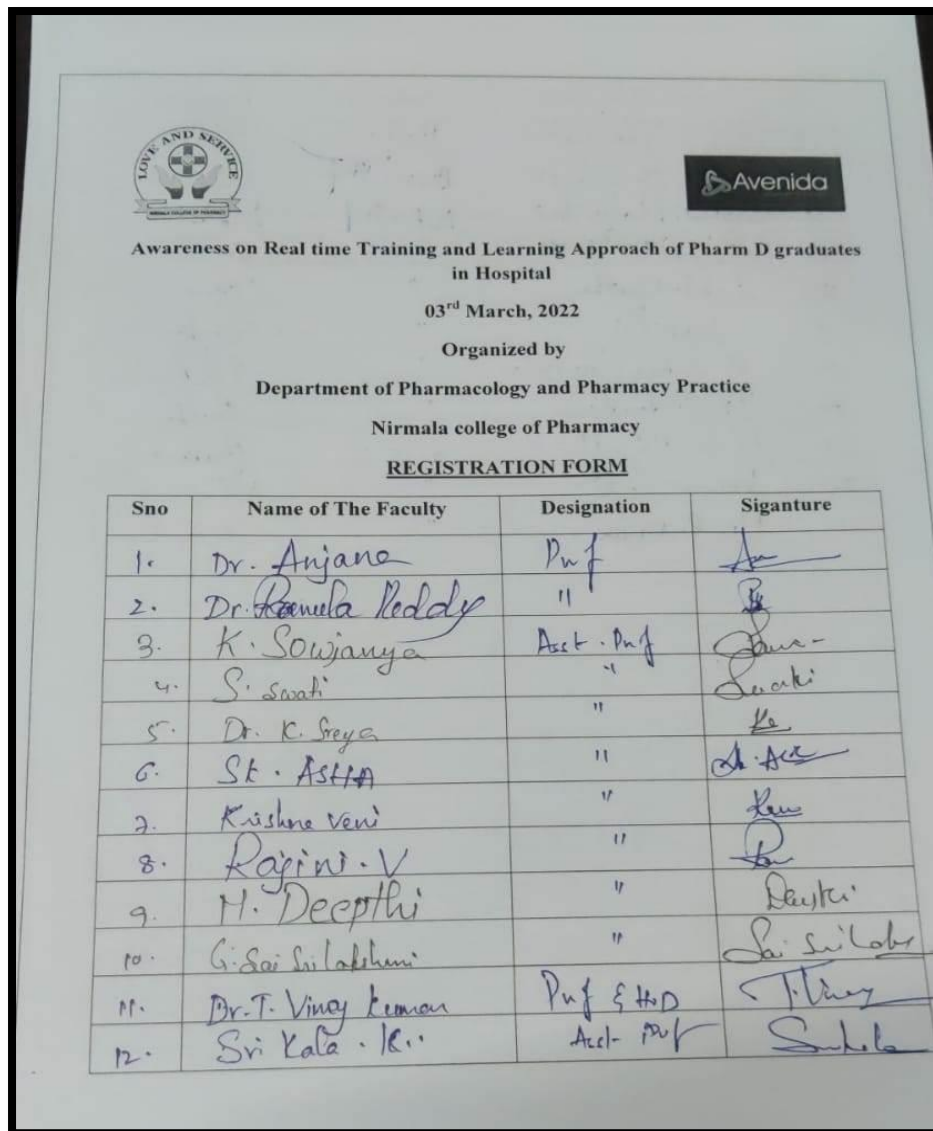 LOVE AND SERVICE
NIRMALA COLLEGE OF PHARMACY
Avenida
Awareness on Real time Training and Learning Approach of Pharm D graduates
in Hospital
03rd March, 2022
Organized by
Department of Pharmacology and Pharmacy Practice
Nirmala college of Pharmacy
REGISTRATION FORM
Sno Name of The Faculty Designation Siganture
1. Dr. Anjana Prof
2. Dr. Reddy "
3. K. Sowjanya Asst. Prof
4. S. Swati " Swathi
5. Dr. K. Sreya "
6. SK. ASHA "
7. Krishna veni "
8. Ragini. V "
9. H. Deepthi "
10. G. Sai Sri lakshmi " Sai Sri
11. Dr. T. Vinay kumar Prof & HOD T. Vinay
12. Sri Kala . K.. Asst. Prof